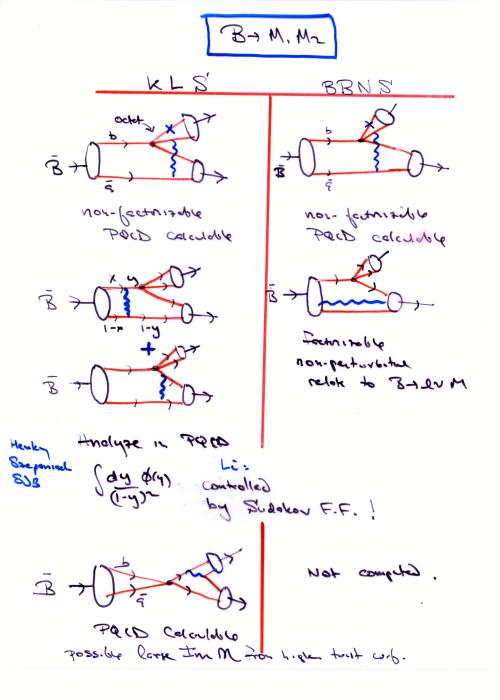 B̄→ M₁ M₂
KLS
BBNS
octet
b
B̄
q̄
non-factorizable
PQCD calculable
b
B̄
q̄
non-factorizable
PQCD calculable
x y
B̄
1-x 1-y
+
B̄
B̄
Factorizable
non-perturbative
relate to B→lν M
Henley
Szczepaniak
SJB
Analyze in PQCD
∫ dy φ(y) / (1-y)²
Li:
controlled
by Sudakov F.F. !
b
B̄
q̄
Not computed.
PQCD Calculable
possible large Im M from higher twist w.f.